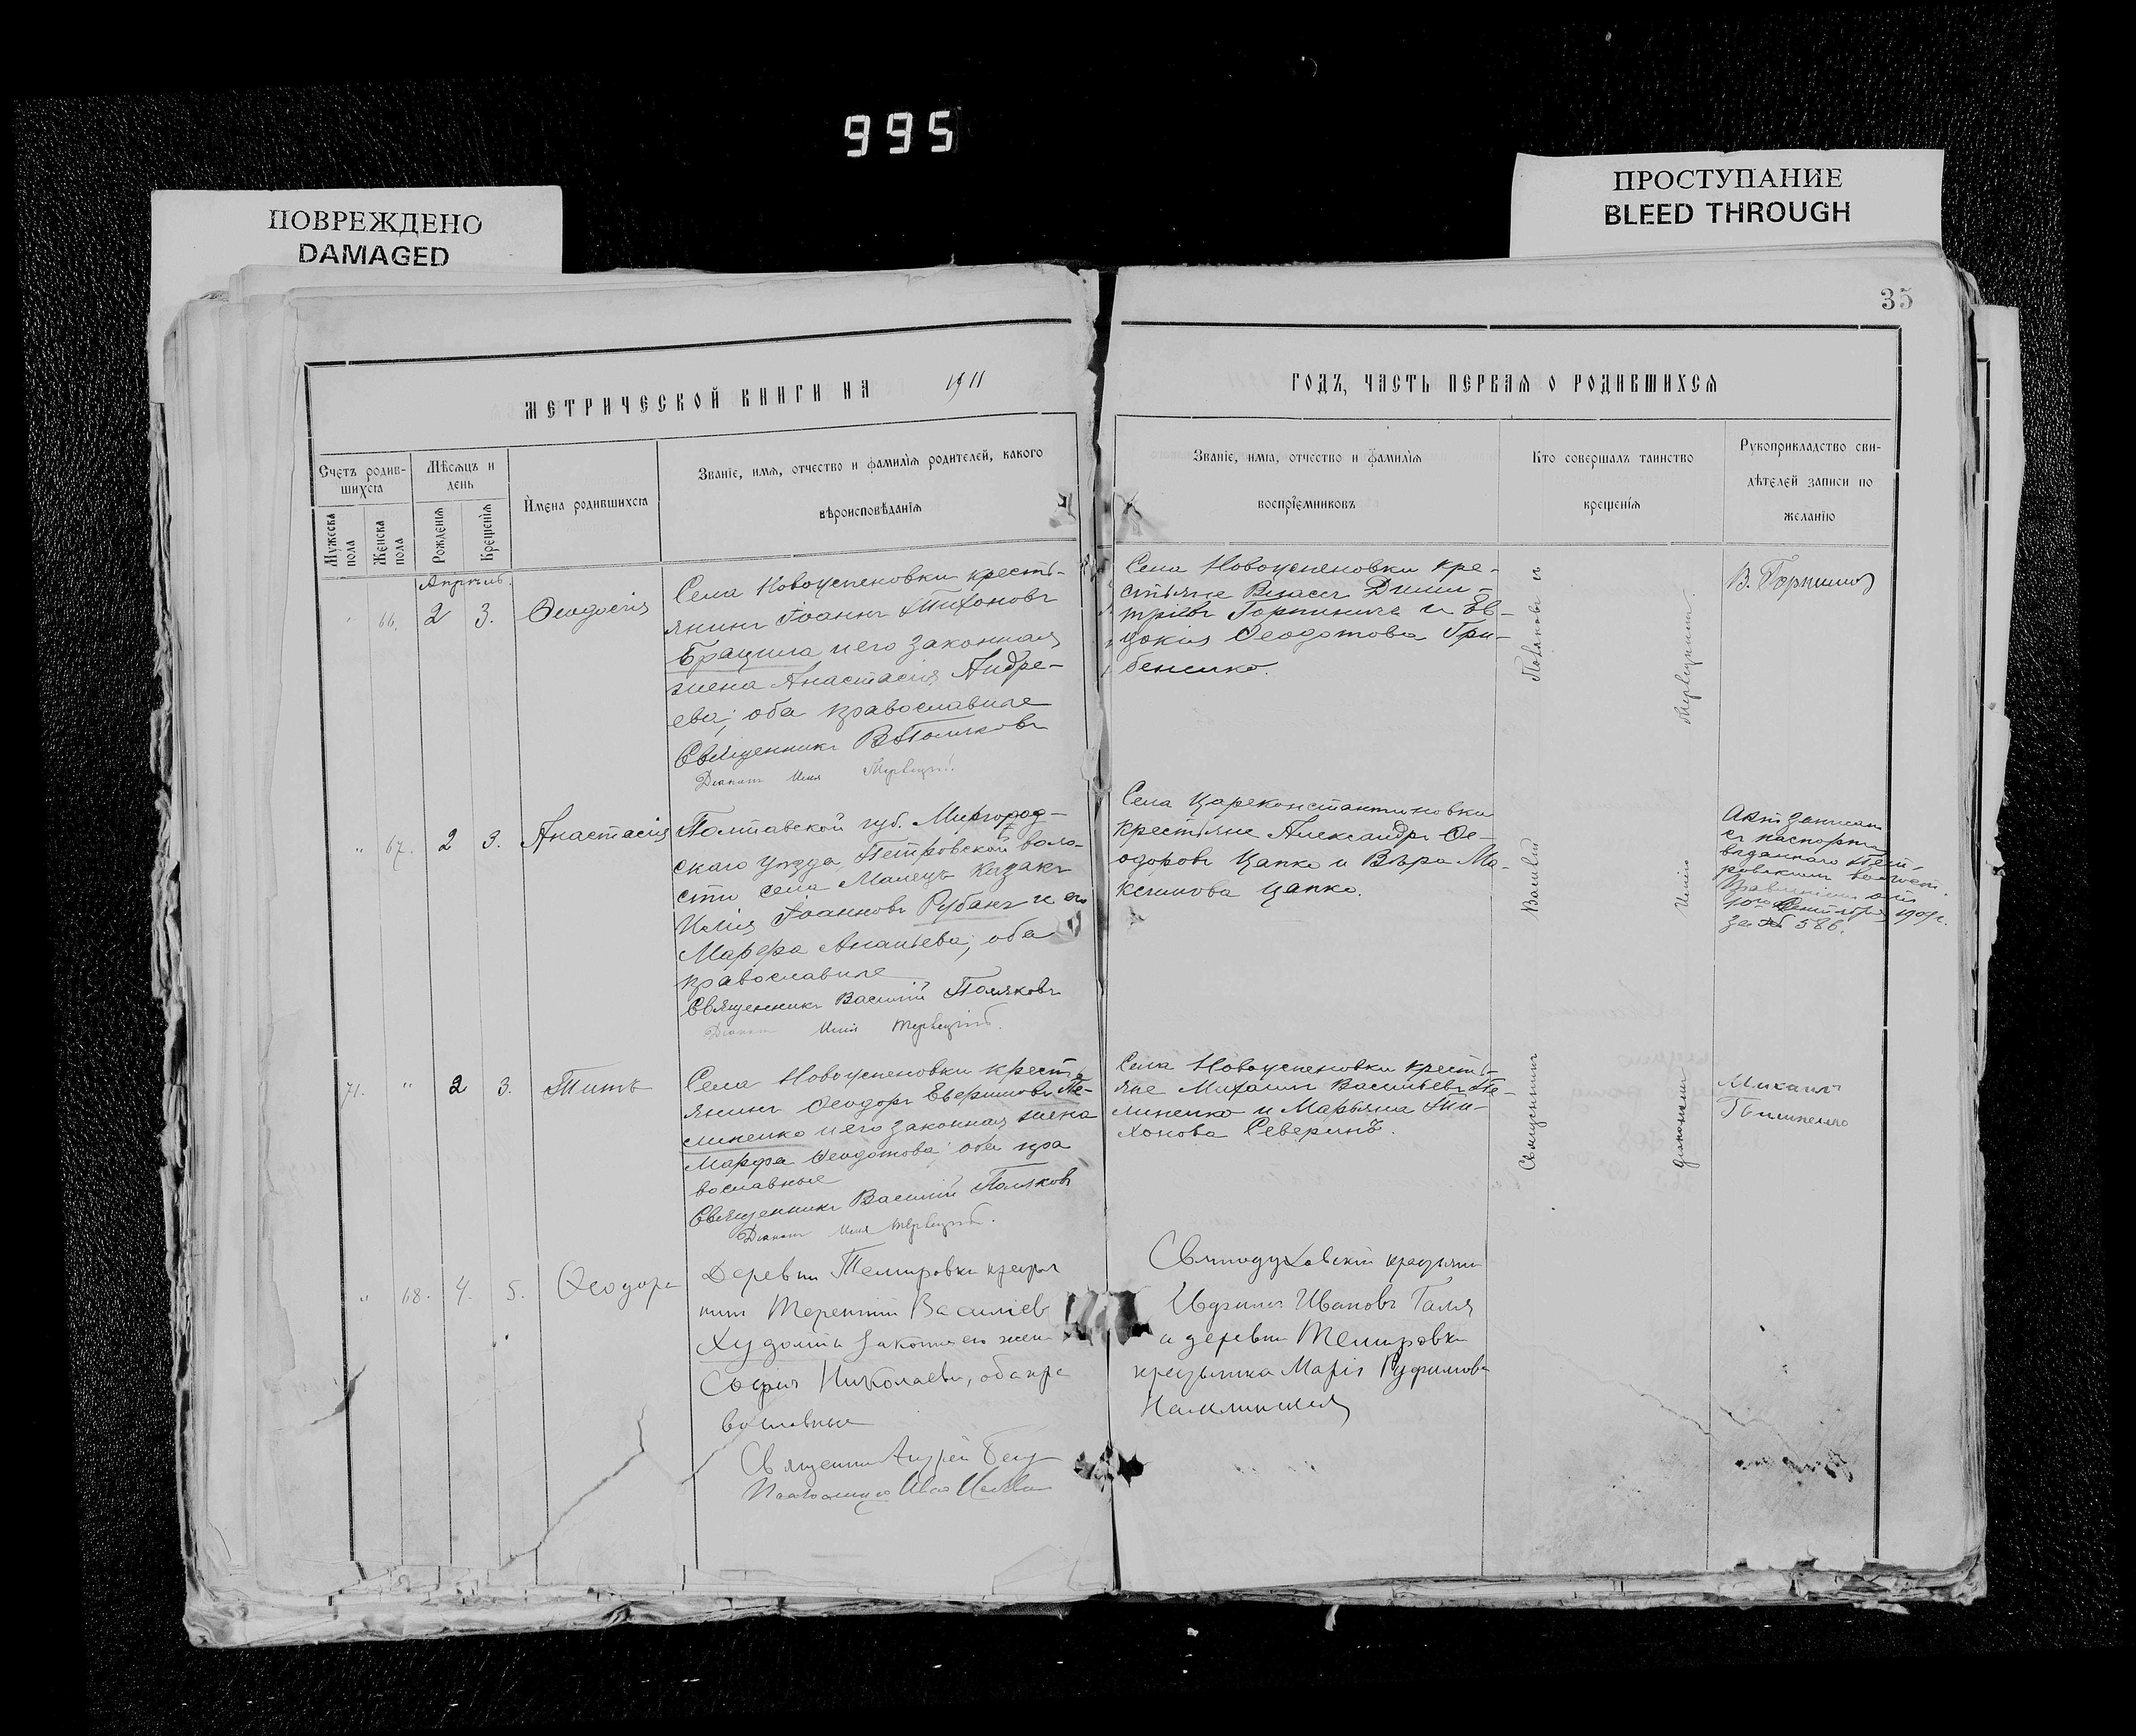 995
ПОВРЕЖДЕНО
DAMAGED
ПРОСТУПАНИЕ
BLEED THROUGH
35
МЕТРИЧЕСКОЙ КНИГИ НА 1911
ГОДЪ, ЧАСТЬ ПЕРВАЯ О РОДИВШИХСЯ
Счетъ родив-
шихся
Мужеска
пола
Женска
пола
Мѣсяцъ и
день
Рожденія
Крещенія
Имена родившихся
Званіе, имя, отчество и фамилія родителей, какого
вѣроисповѣданія
Званіе, имя, отчество и фамилія
воспріемниковъ
Кто совершалъ таинство
крещенія
Рукоприкладство сви-
дѣтелей записи по
желанію
Апрѣль.
" 66. 2 3. Ѳеодосія
Села Новоуспеновки кресть-
янинъ Іоаннъ Тихоновъ
и его законная
жена Анастасія Андре-
ева; оба православные
Священникъ В Поляковъ
Діаконъ Илія
Села Новоуспеновки кре-
стьяне Власъ Дими-
тріевъ и Ев-
докия Ѳеодотова Гри-
бенико.
" 67. 2 3. Анастасія
Полтавской губ. Миргород-
скаго уѣзда, Петровской воло-
сти села Малецъ Казакъ
Илія Іоанновъ Рубанъ и его
Марфа Ананьева; оба
православные
Священникъ Василій Поляковъ
Діаконъ Илія
Села Цареконстантиновки
крестьяне Александръ Ѳе-
одоровъ Цапко и Вѣра Ма-
ксимова Цапко.
Актъ записанъ
съ паспорта
выданнаго Пет-
ровскимъ волост.
Правленіем отъ
10го Сентября 1909г.
за № 586.
71. " 2 3. Титъ
Села Новоуспеновки кресть
янинъ Ѳеодоръ Евфимовъ Пи-
липенко и его законная жена
Марфа Ѳеодотова; оба пра
вославные
Священникъ Василій Поляковъ
Діаконъ Илія
Села Новоуспеновки кресть-
яне Михаилъ Васильевъ Пи-
липенко и Марьяна Ти-
хонова Северинъ.
Михаилъ
Пилипенко
" 68. 4. 5. Ѳеодора
Деревни Темировки
Терентій Василіев
законная его жена
Софія Николаева, оба пра
вославные
Священник Андрей
Псаломщик Иван
Святодуховскій
Ивановъ
и деревни Темировки
крестьянка Марія
Священникъ
Василій
Поляковъ съ
діакономъ
Иліею